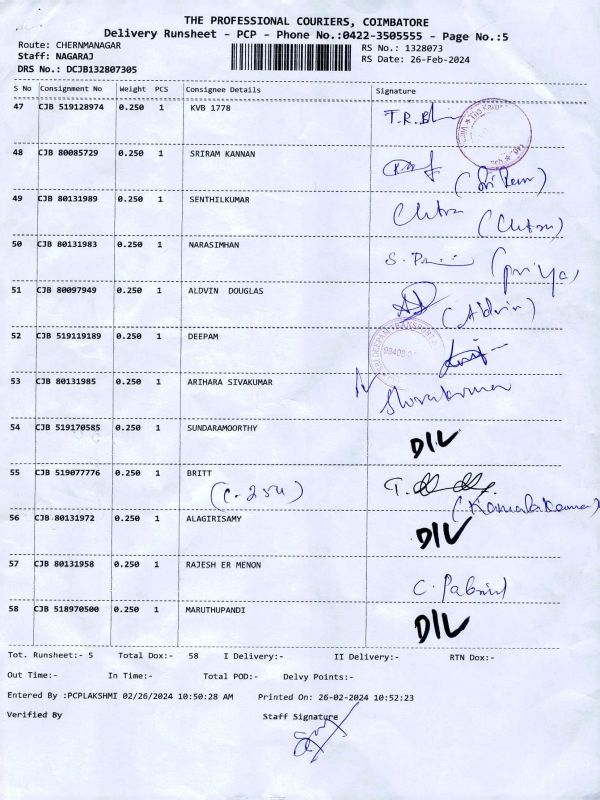 THE PROFESSIONAL COURIERS, COIMBATORE
Delivery Runsheet - PCP - Phone No.:0422-3505555 - Page No.:5
Route: CHERNMANAGAR RS No.: 1328073
Staff: NAGARAJ RS Date: 26-Feb-2024
DRS No.: DCJB132807305
S No Consignment No Weight PCS Consignee Details Signature
47 CJB 519128974 0.250 1 KVB 1778
48 CJB 80085729 0.250 1 SRIRAM KANNAN
(Sri Ram)
49 CJB 80131989 0.250 1 SENTHILKUMAR
Chitra (Chitra)
50 CJB 80131983 0.250 1 NARASIMHAN
(Priya)
51 CJB 80097949 0.250 1 ALDVIN DOUGLAS
(Aldvin)
52 CJB 519119189 0.250 1 DEEPAM
DEEPAM TRANSPORT
53 CJB 80131985 0.250 1 ARIHARA SIVAKUMAR
54 CJB 519170585 0.250 1 SUNDARAMOORTHY
D/L
55 CJB 519077776 0.250 1 BRITT
(C-254)
56 CJB 80131972 0.250 1 ALAGIRISAMY
D/L
57 CJB 80131958 0.250 1 RAJESH ER MENON
58 CJB 518970500 0.250 1 MARUTHUPANDI
D/L
Tot. Runsheet:- 5 Total Dox:- 58 I Delivery:- II Delivery:- RTN Dox:-
Out Time:- In Time:- Total POD:- Delvy Points:-
Entered By :PCPLAKSHMI 02/26/2024 10:50:28 AM Printed On: 26-02-2024 10:52:23
Verified By Staff Signature